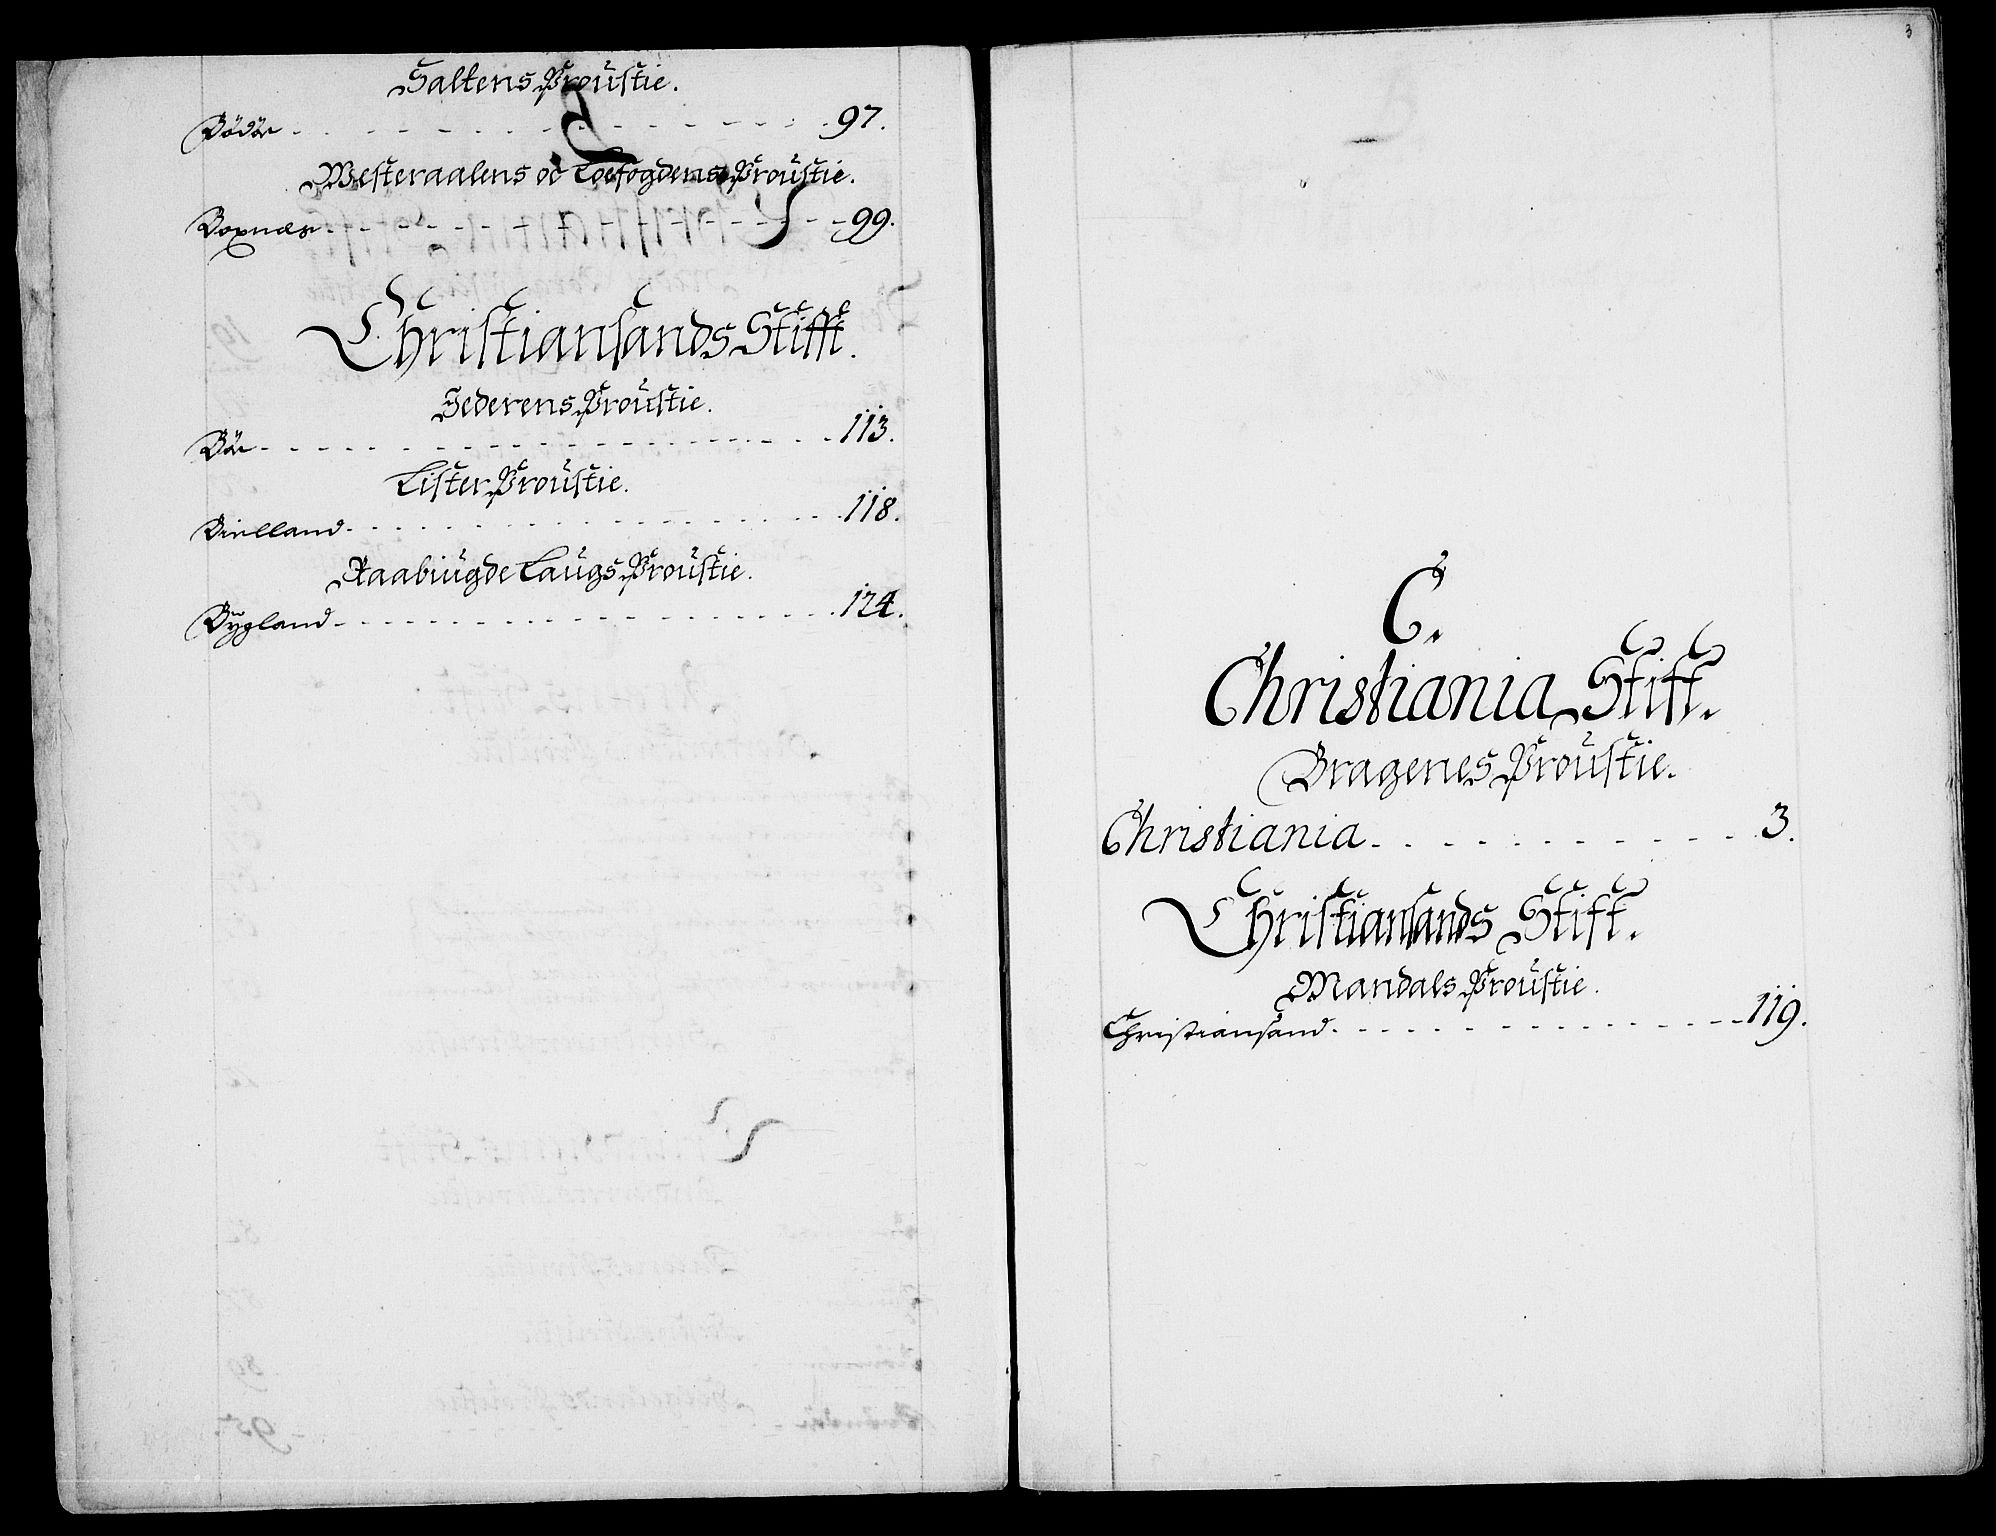 Saltens Proustie.
Bodöe 97.
Westeraalens oc Loefogdens Proustie.
Boxnæs 99.
Christiansands Stifft.
Jederens Proustie.
Böe 113.
Lister Proustie.
Bielland 118.
Raabiugde Laugs Proustie.
Bygland 124.
3
C.
Christiania Stift.
Bragenes Proustie.
Christiania 3.
Christiansands Stift.
Mandals Proustie.
Christiansand 119.